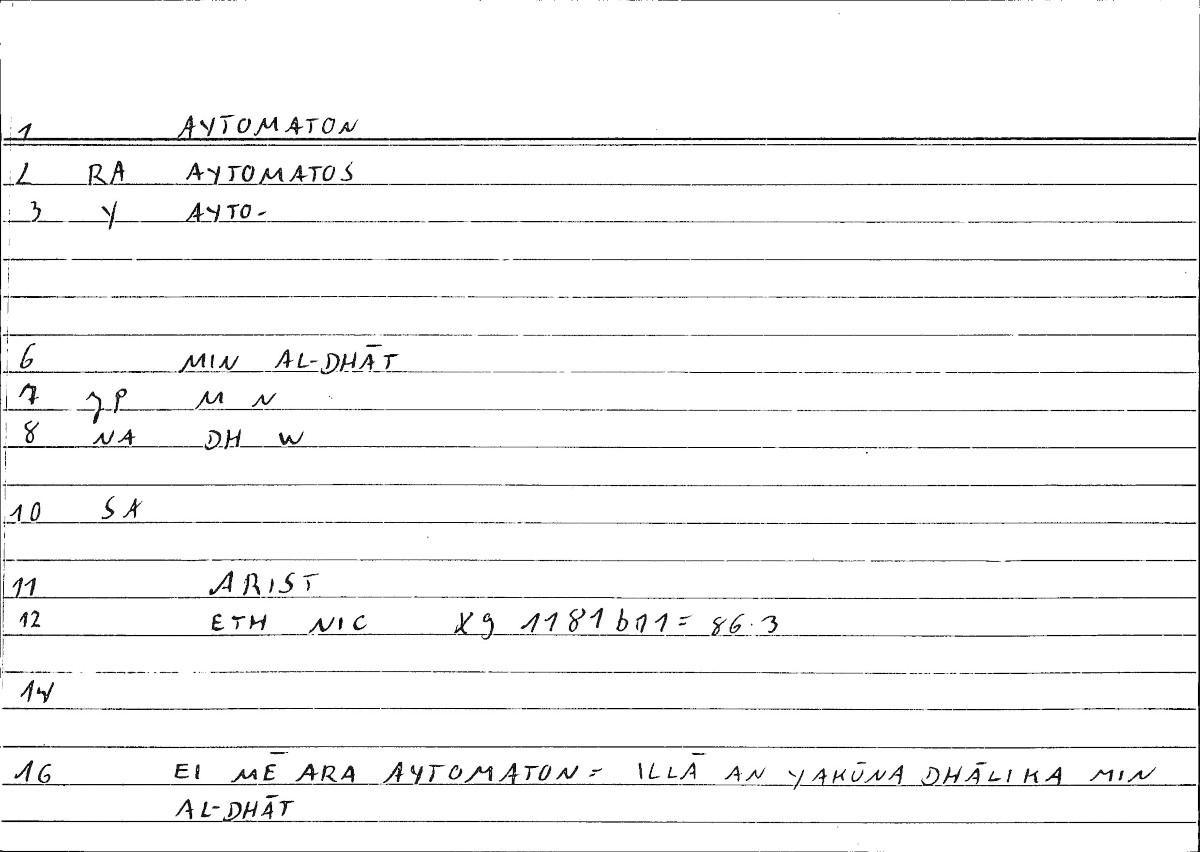 1 AYTOMATON
2 RA AYTOMATOS
3 Y AYTO-
6 MIN AL-DHĀT
7 JP M N
8 NA DH W
10 SA
11 ARIST
12 ETH NIC X9 1181b11= 86.3
14
16 EI MĒ ARA AYTOMATON= ILLĀ AN YAKŪNA DHĀLIKA MIN
AL-DHĀT